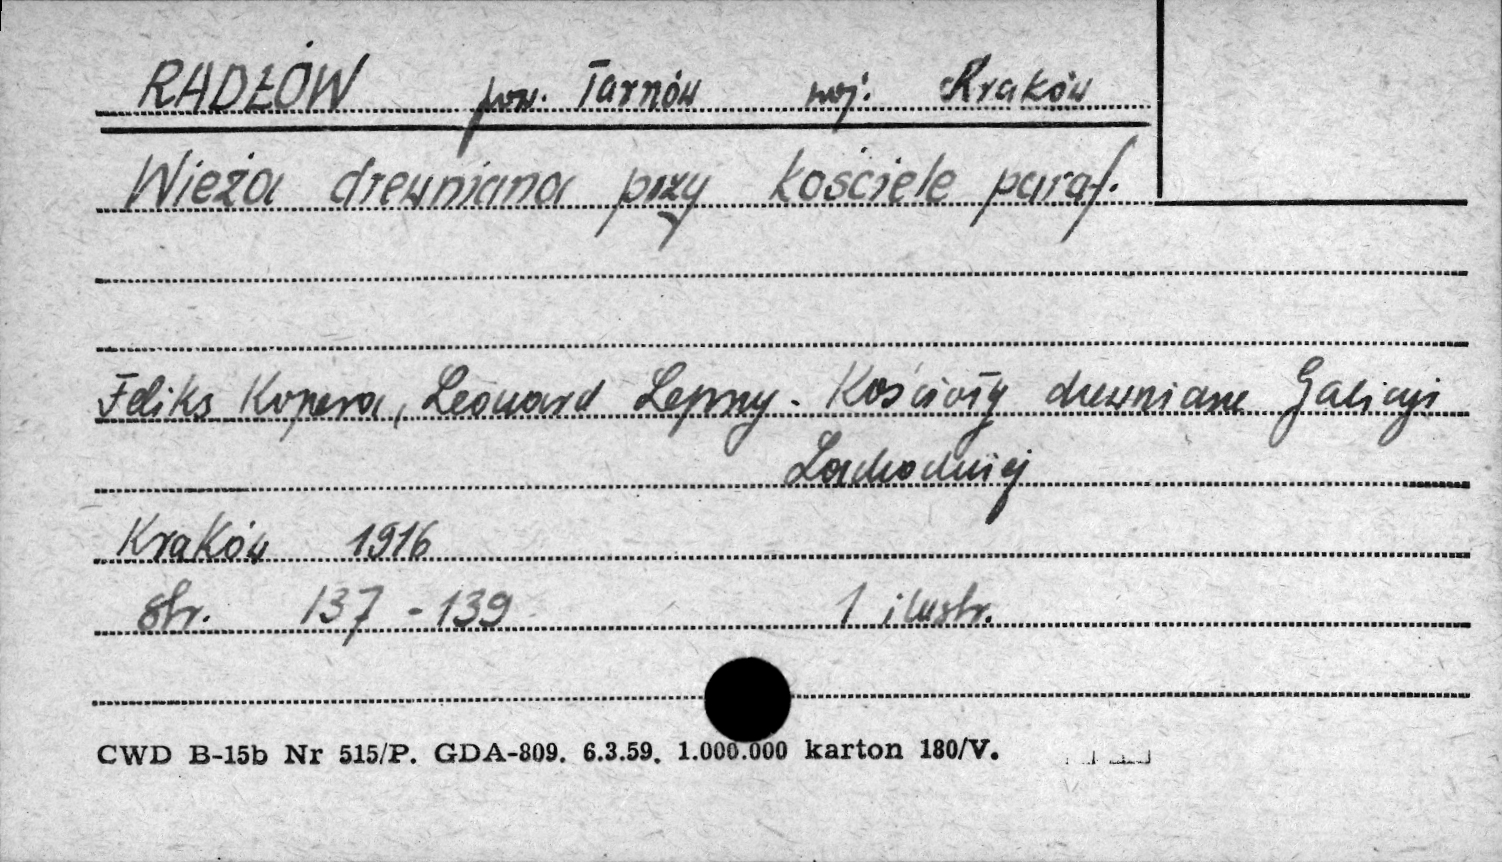 RADŁÓW pow. Tarnów woj. Kraków
Wieża drewniana przy kościele paraf.
Feliks Kopera, Leonard Lepszy. Kościoły drewniane Galicji
Zachodniej
Kraków 1916
str. 137 - 139 1 ilustr.
CWD B-15b Nr 515/P. GDA-809. 6.3.59. 1.000.000 karton 180/V.